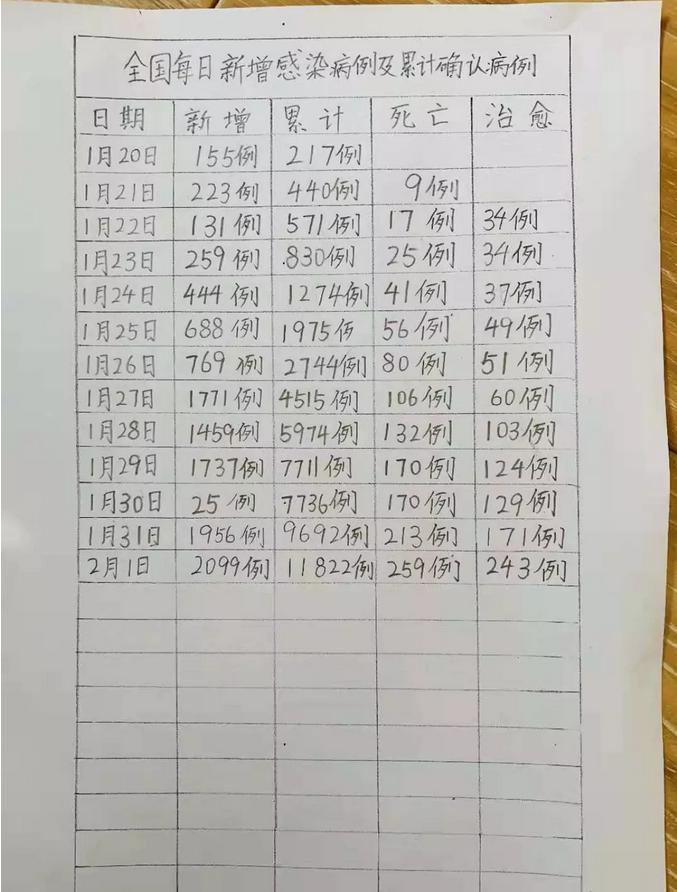 全国每日新增感染病例及累计确认病例
日期 新增 累计 死亡 治愈
1月20日 155例 217例
1月21日 223例 440例 9例
1月22日 131例 571例 17例 34例
1月23日 259例 830例 25例 34例
1月24日 444例 1274例 41例 37例
1月25日 688例 1975例 56例 49例
1月26日 769例 2744例 80例 51例
1月27日 1771例 4515例 106例 60例
1月28日 1459例 5974例 132例 103例
1月29日 1737例 7711例 170例 124例
1月30日 25例 7736例 170例 129例
1月31日 1956例 9692例 213例 171例
2月1日 2099例 11822例 259例 243例